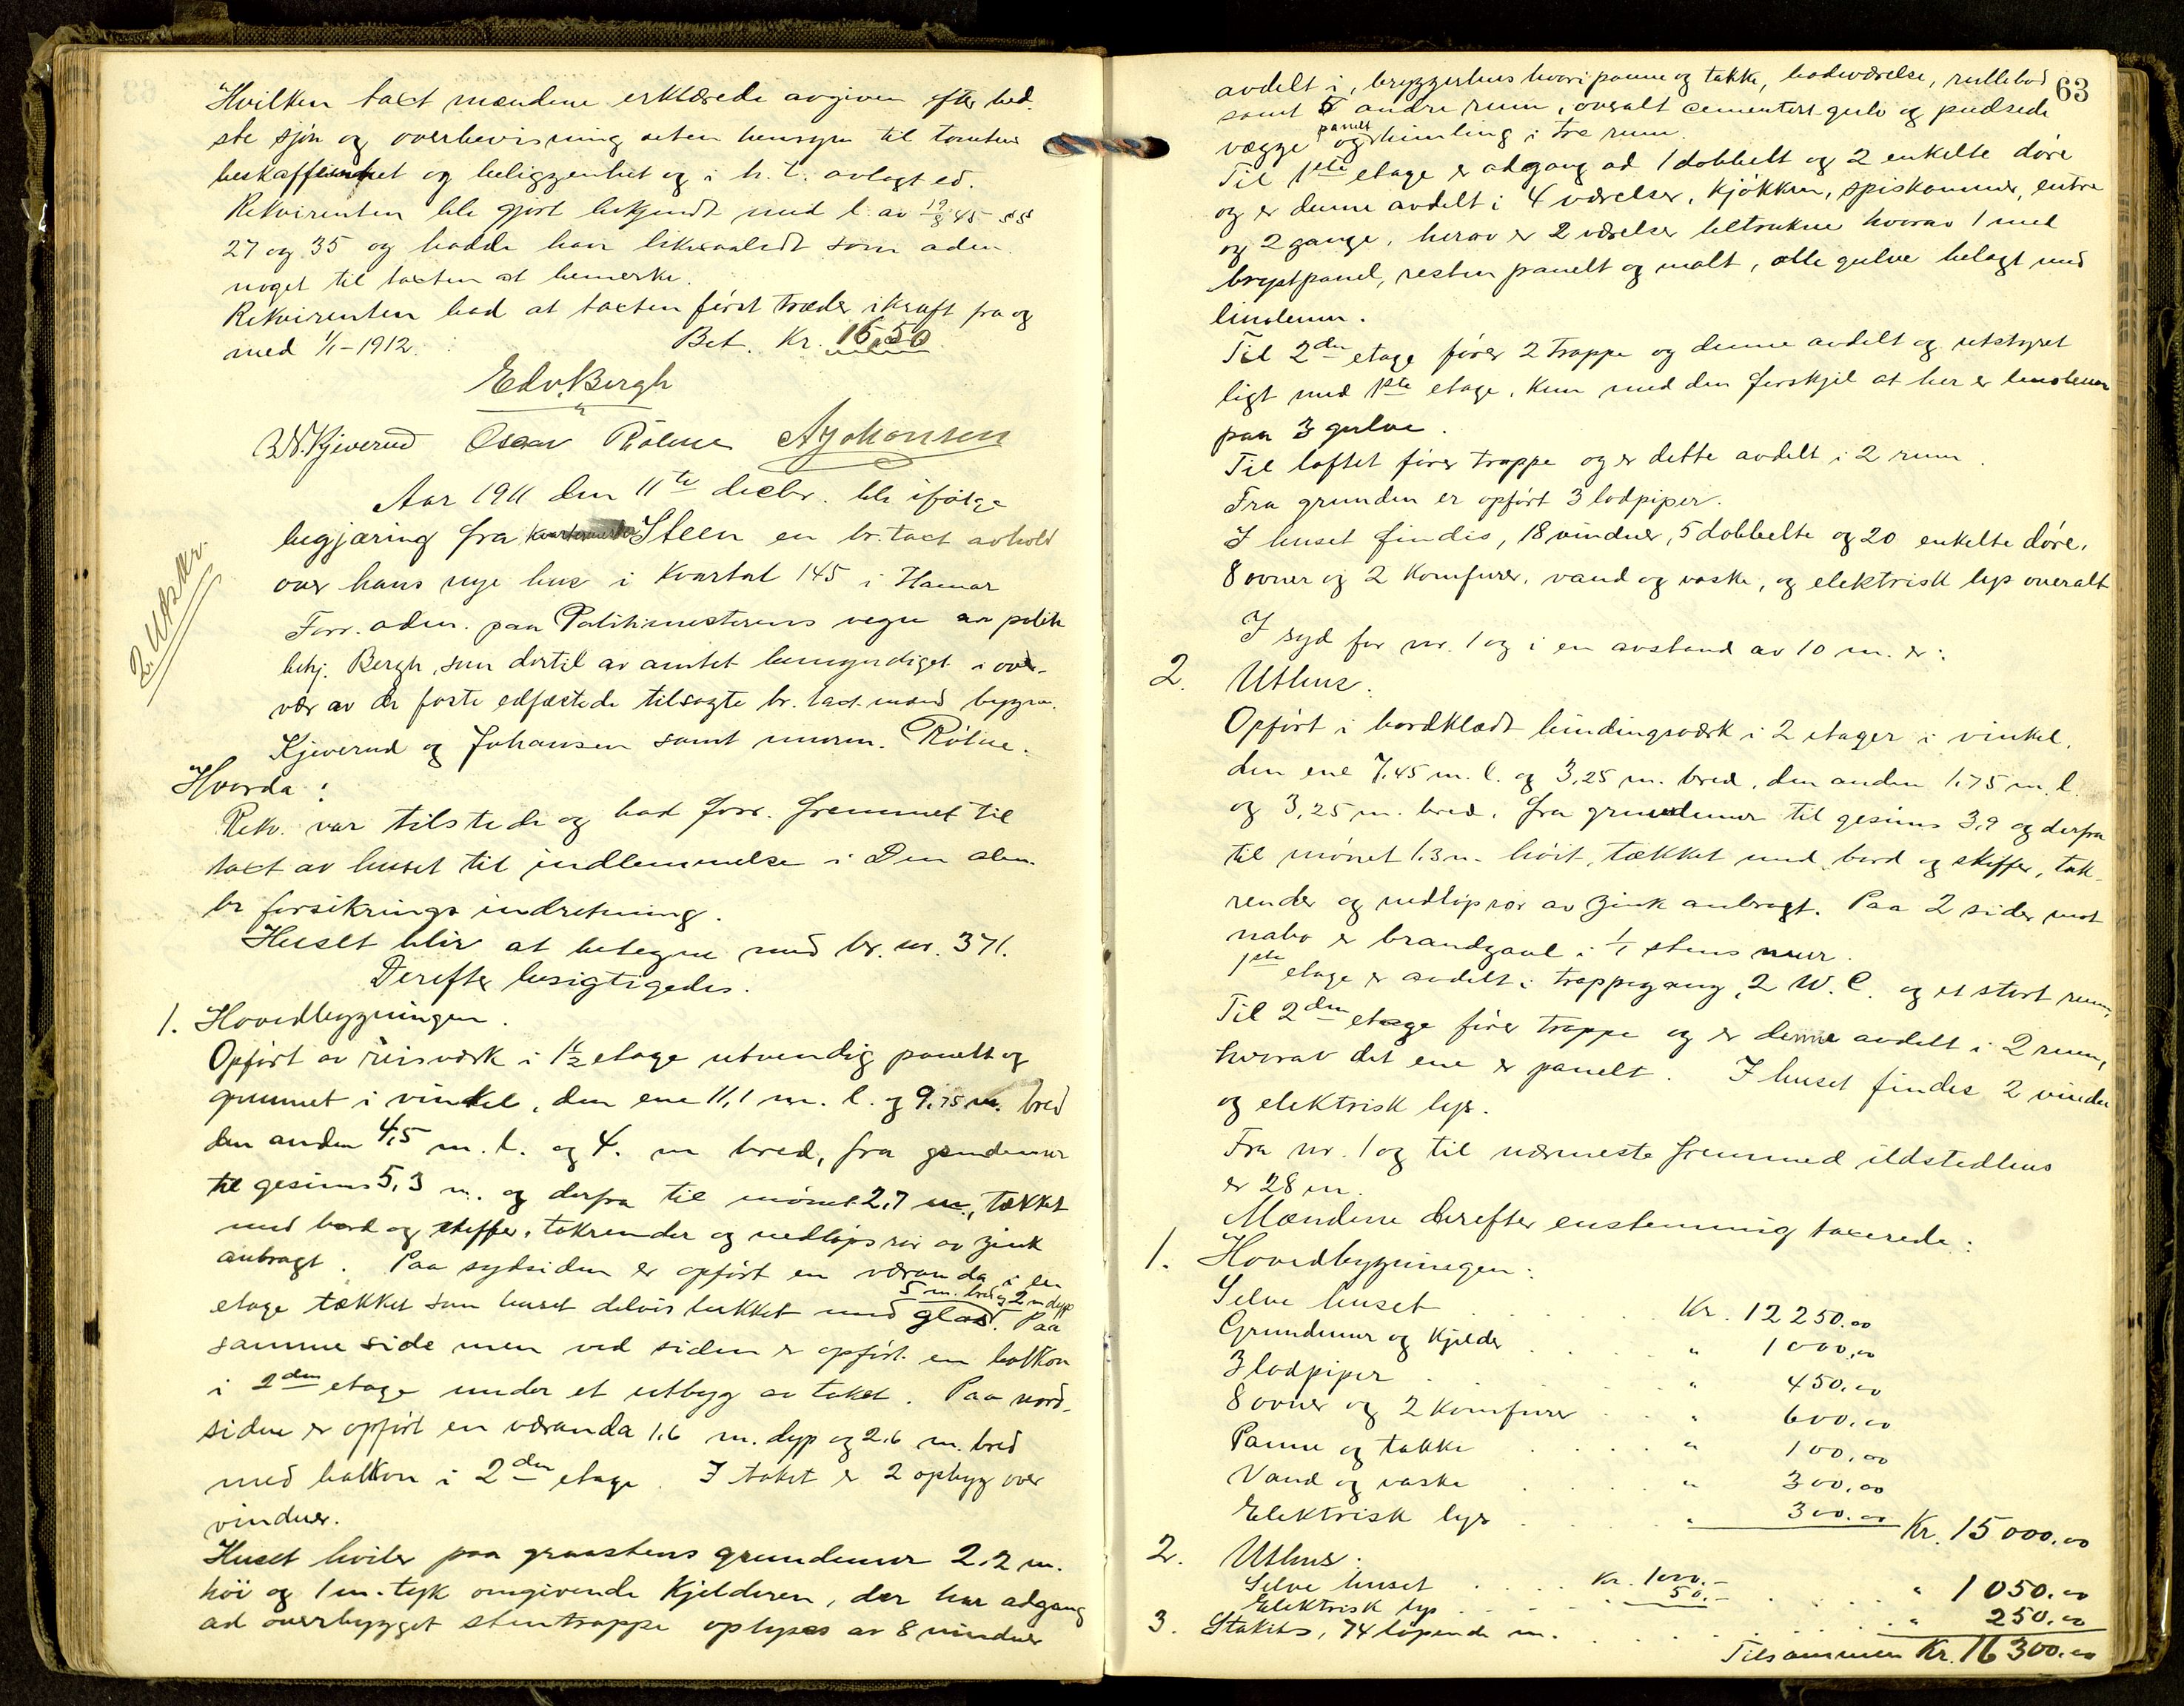 Hvilken taxt mændene erklærede avgiven efter bed-
ste sjøn og overbevisning uten hensyn til tomtens
beskaffenhet og beliggenhet og i h. t. avlagt ed.
Rekvirenten ble gjort bekjendt med l. av 19/8 45 §§
27 og 35 og hadde han likesaalidt som adm.
noget til taxten at bemerke.
Rekvirenten bad at taxten først træder ikraft fra og
med 1/1-1912. Bet. Kr. 16,50.
Edv. Bergh
W. Kjeverud Oscar Rölme A Johansen
Aar 1911 den 11te decbr. ble ifølge
2 Utskr.
begjæring fra Steen en br. taxt avhold
over hans nye hus i Kvartal 145 i Hamar
Forr. adm. paa Politimesterens vegne av politi
betj. Bergh, som dertil av amtet bemyndiget i over-
vær av de faste edfæstede tilsagte br. taxt. mænd bygm.
Kjeverud og Johansen samt murm. Rölme.
Hvorda:
Rekv. var tilstede og bad forr. fremmet til
taxt av huset til indlemmelse i Den alm.
br forsikrings indretning.
Huset blir at betegne med br. nr. 371.
Derefter besigtigedes.
1. Hovedbygningen.
Opført av reisværk i 1 1/2 etage utvendig panelt og
grunnet i vinkel, den ene 11,1 m. l. og 9,75 m. bred
den anden 4,5 m. l. og 4. m bred, fra grundmur
til gesims 5,3 m. og derfra til mønet 2,7 m., tækket
med bord og skiffer, takrender og nedløpsrør av zink
anbragt. Paa sydsiden er opført en væranda i en
5 m. bred og 2 m dyp
etage tækket som huset delvis lukket med glas. Paa
samme side men ved siden er opført en balkon
i 2den etage under et utbyg av taket. Paa nord-
siden er opført en væranda 1.6 m. dyp og 2.6 m. bred
med balkon i 2den etage. I taket er 2 opbyg over
vinduer.
Huset hviler paa graastens grundmur 2.2 m.
høi og 1 m. tyk omgivende Kjelderen, der har adgang
ad overbygget stentrappe oplyses av 8 vinduer
63
avdelt i, bryggerhus hvori panne og takke, badeværelse, rullebod
samt 5 andre rum, overalt cementert gulv og pudsede
panelt
vægge og himling i tre rum.
Til 1ste etage er adgang ad 1 dobbelt og 2 enkelte døre
og er denne avdelt i 4 værelser, Kjøkken, spiskammer, entre
og 2 gange, herav er 2 værelser betrukne hvorav 1 med
brystpanel, resten panelt og malt, alle gulve belagt med
linoleum.
Til 2den etage fører 2 trappe og denne avdelt og utstyret
ligt med 1ste etage, Kun med den forskjel at her er linoleum
paa 3 gulve.
Til loftet fører trappe og er dette avdelt i 2 rum.
Fra grunden er opført 3 lodpiper.
I huset findes, 18 vinduer, 5 dobbelte og 20 enkelte døre,
8 ovner og 2 Komfurer, vand og vaske, og elektrisk lys overalt
I syd for nr. 1 og i en avstand av 10 m. er:
2. Uthus.
Opført i bordklædt bindingsværk i 2 etager i vinkel,
den ene 7.45 m. l. og 3,25 m. bred, den anden 1.75 m. l.
og 3,25 m. bred, fra grundmur til gesims 3,9 og derfra
til mønet 1.3 m. høit, tækket med bord og skiffer, tak-
render og nedløpsrør av zink anbragt. Paa 2 sider mot
nabo er brandgavl i 1/1 stens mur.
1ste etage er avdelt i trappegang, 2 W. C. og et stort rum,
Til 2den etage fører trappe og er denne avdelt i 2 rum,
hvorav det ene er panelt. I huset findes 2 vinduer
og elektrisk lys.
Fra nr. 1 og til nærmeste fremmed ildstedhus
er 28 m.
Mændene derefter enstemmig taxerede:
1. Hovedbygningen:
Selve huset . . . Kr. 12250.00
Grundmur og Kjelder . . " 1000,00
3 lodpiper . . . " 450.00
8 ovner og 2 Komfurer . . " 600.00
Panne og takke . . . " 100,00
Vand og vaske . . . " 300.00
Elektrisk lys . . . " 300.00 Kr. 15000.00
2. Uthus.
Selve huset . . . Kr. 1000.-
Elektrisk lys . . . 50.- . . . " 1050.00
3. Stakit, 74 løpende m. . . . " 250.00
Tilsammen Kr. 16300.00